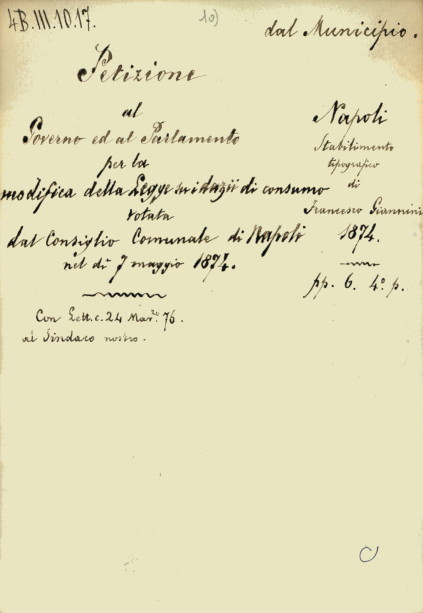 4B.III.10.17.
10)
dal Municipio.
Petizione
al
Governo ed al Parlamento
per la
modifica della Legge sui dazii di consumo
votata
dal Consiglio Comunale di Napoli
nel dì 7 maggio 1874.
Con Lett.c. 24 Mar.zo 76.
al Sindaco nostro.
Napoli
Stabilimento
tipografico
di
Francesco Giannini
1874.
pp. 6. 4.° p.